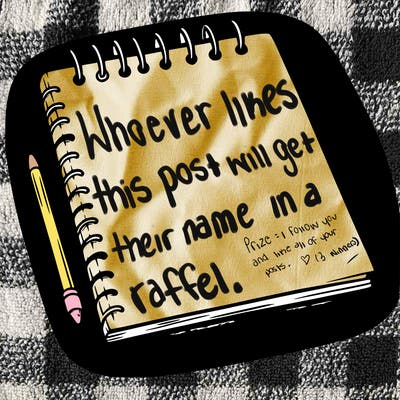 Whoever likes
this post will get
their name in a
raffel.
Prize = I follow you
and like all of your
posts. ♡ (3 winners)